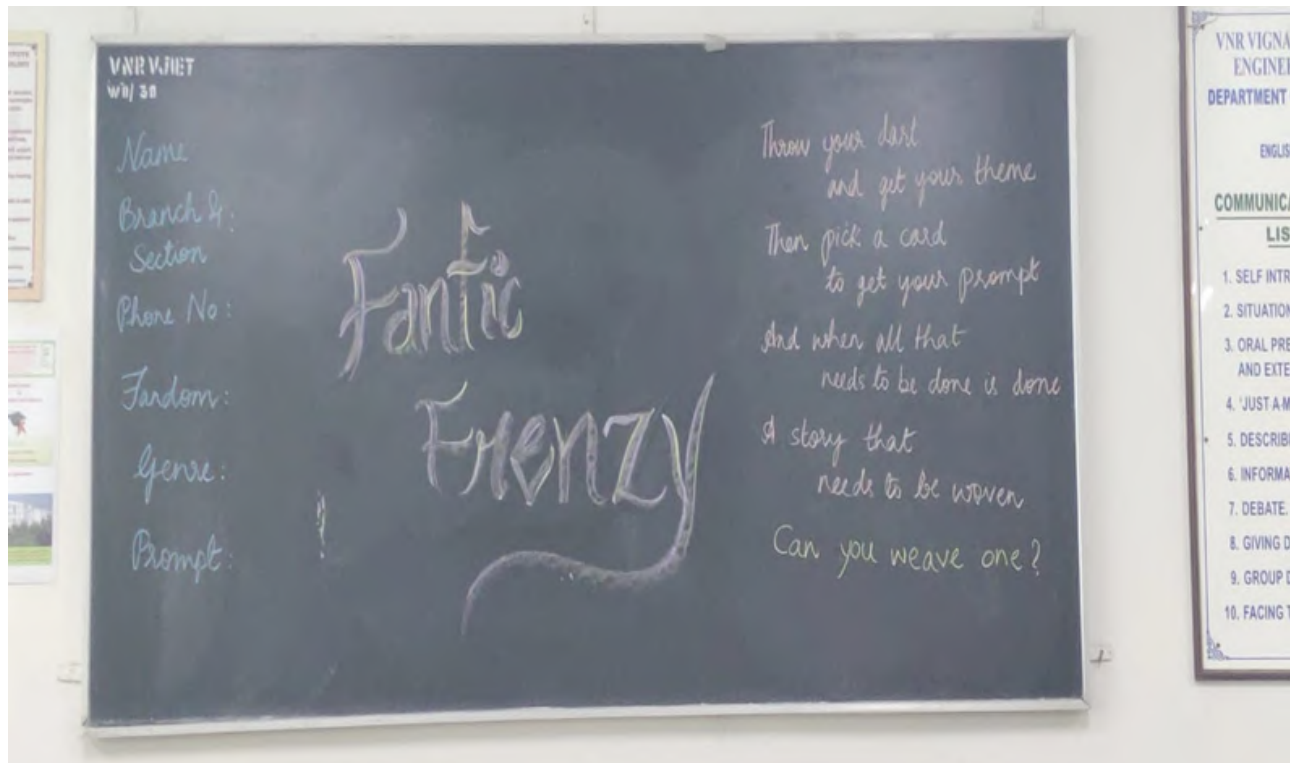 VNR VJIET
WB/30
Name
Branch &:
Section
Phone No:
Fandom:
Genre:
Prompt:
Fanfic
Frenzy
Throw your dart
and get your theme
Then pick a card
to get your prompt
And when all that
needs to be done is done
A story that
needs to be woven
Can you weave one?
VNR VIGNA
ENGINEE
DEPARTMENT
ENGLIS
COMMUNICA
LIS
1. SELF INTR
2. SITUATION
3. ORAL PRE
AND EXTE
4. 'JUST-A-M
5. DESCRIB
6. INFORMA
7. DEBATE.
8. GIVING D
9. GROUP D
10. FACING T